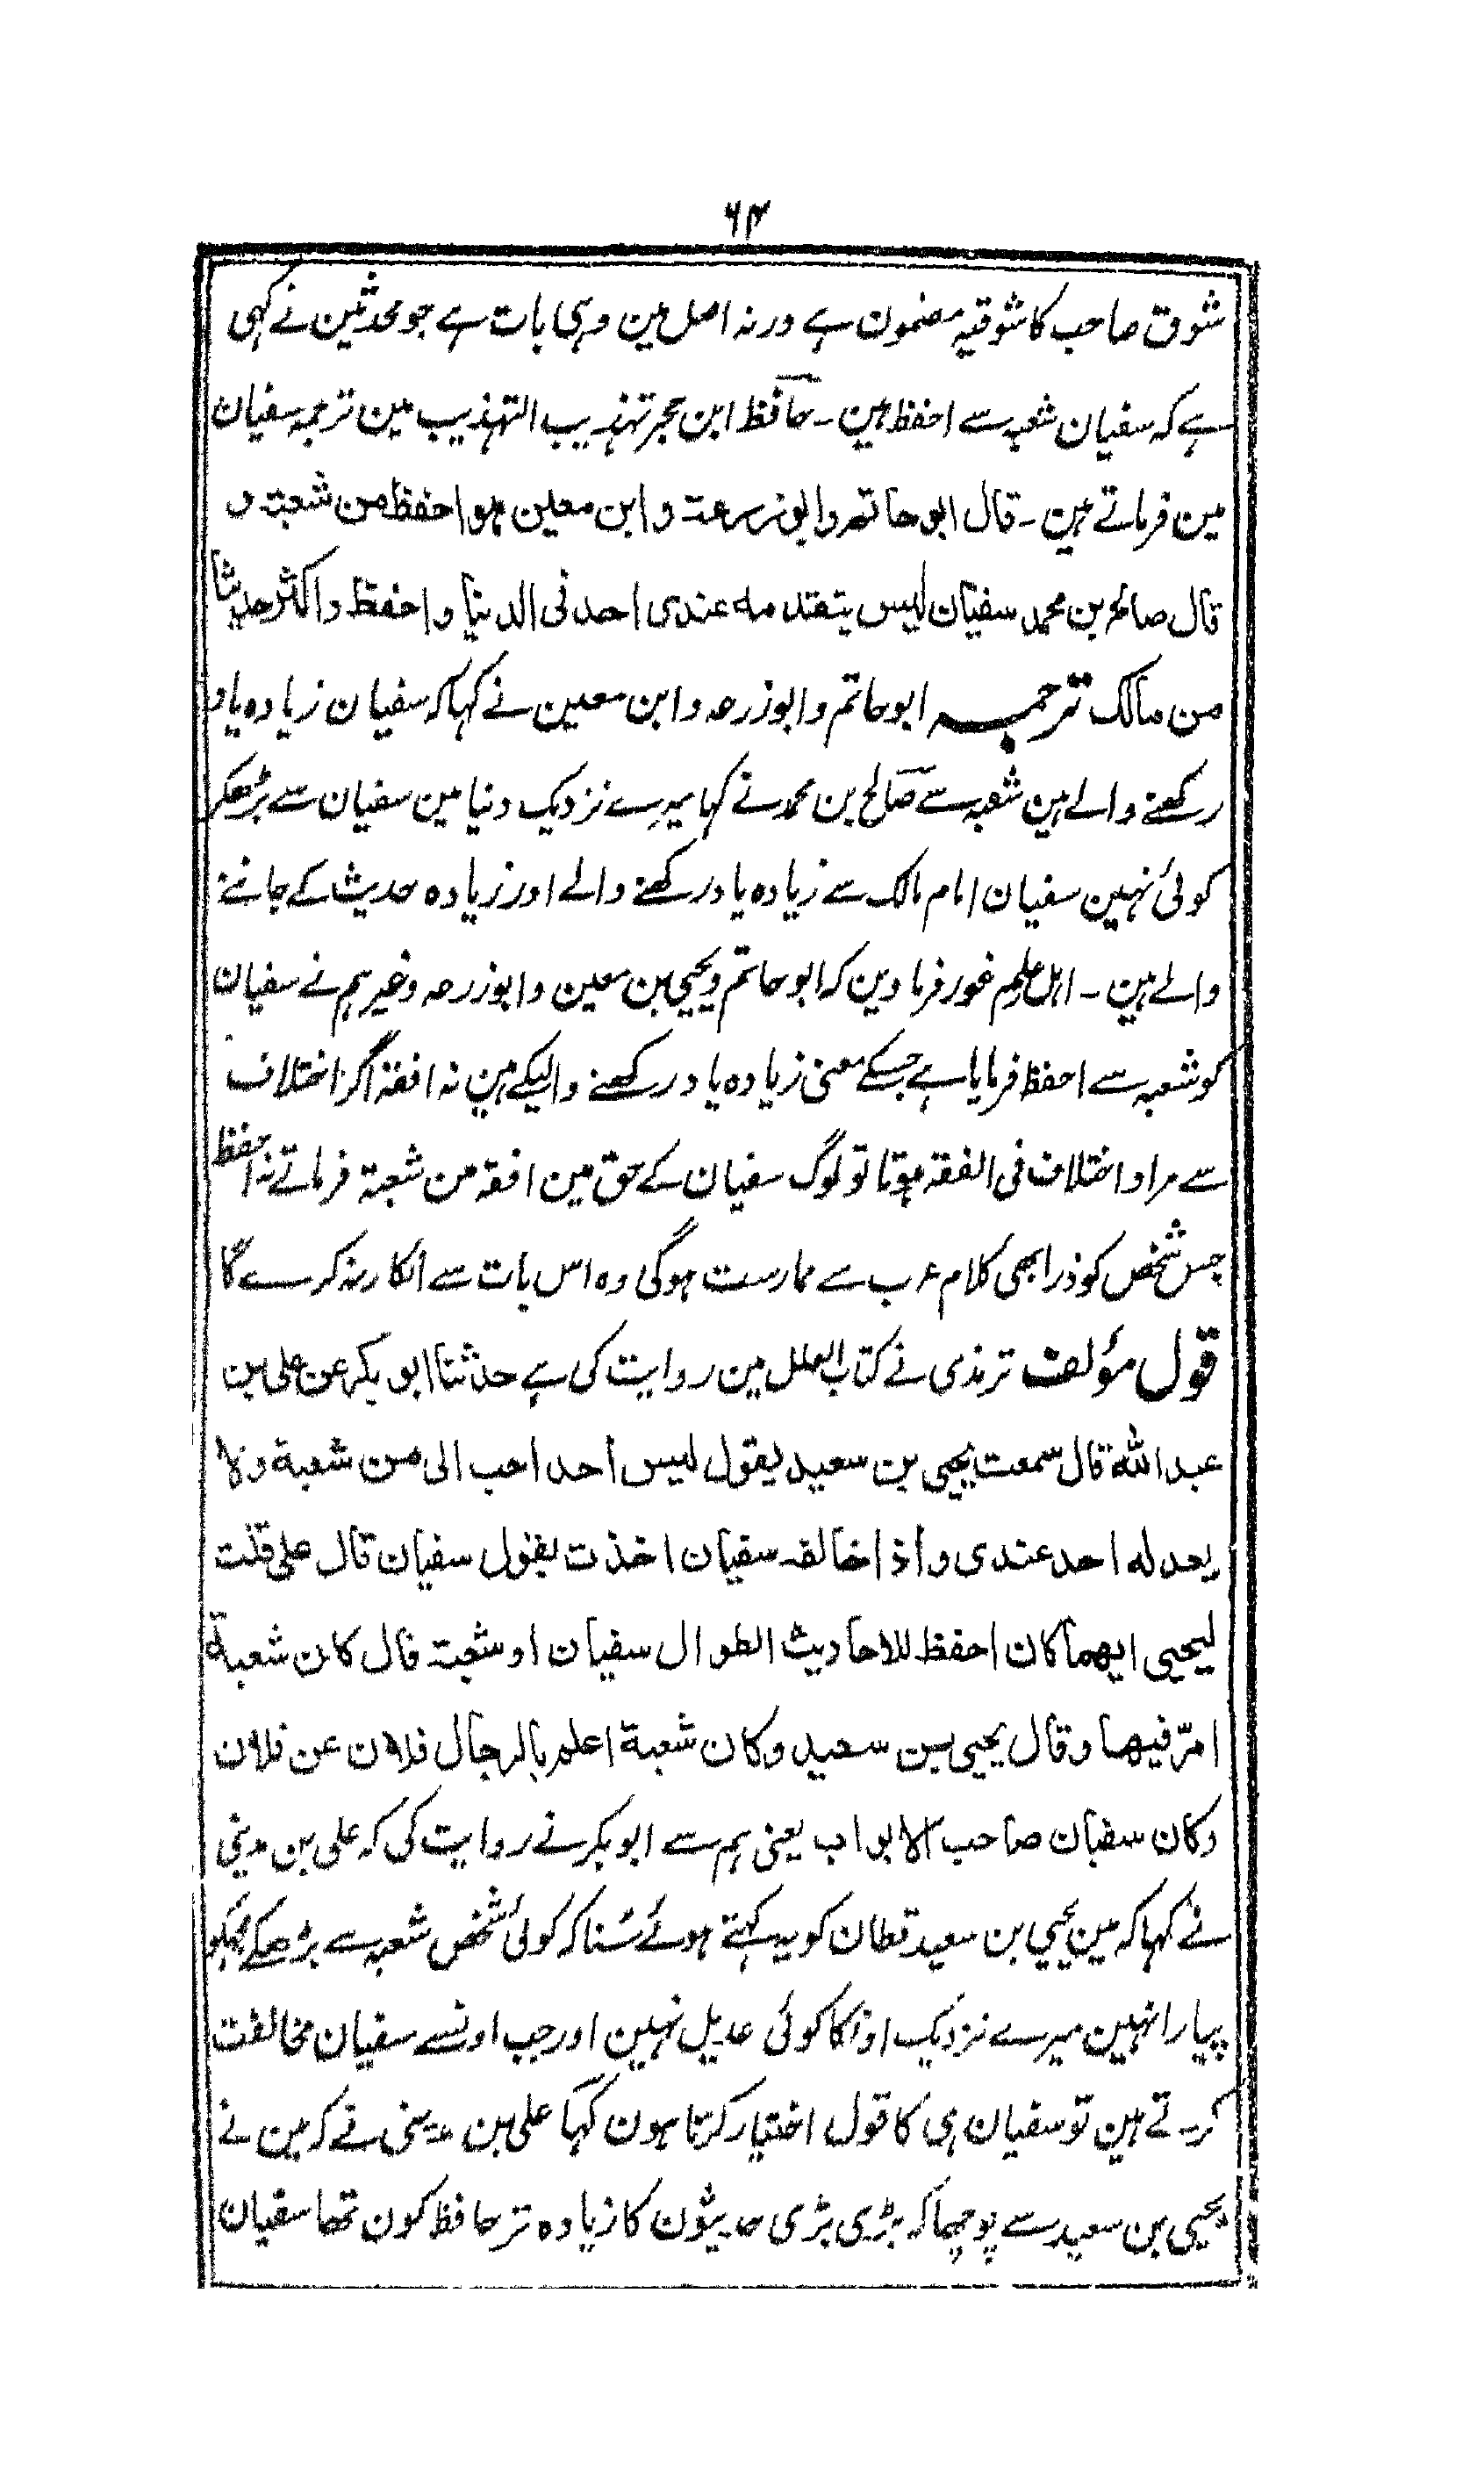 ۶۴
شوق صاحب کا شوقیہ مضمون ہے ورنہ اصل مین وہی بات ہے جو محدثین نے کہی
ہے کہ سفیان شعبہ سے احفظ ہین ۔ حافظ ابن حجر تہذیب التہذیب مین ترجمہ سفیان
مین فرماتے ہین ۔ قال ابو حاتم وابو زرعۃ وابن معین ہو احفظ من شعبۃ و
قال صالح بن محمد سفیان لیس یتقدمہ عندی احد فی الدنیا واحفظ واکثر حدیثا
من مالک ترجمہ ابو حاتم وابوزرعہ وابن معین نے کہا کہ سفیان زیادہ یاد
رکھنے والے ہین شعبہ سے صالح بن محمد نے کہا میرے نزدیک دنیا مین سفیان سے بڑھکر
کوئی نہین سفیان امام مالک سے زیادہ یاد رکھنے والے اور زیادہ حدیث کے جاننے
والے ہین ۔ اہل علم غور فرماوین کہ ابو حاتم ویحیی بن معین وابوزرعہ وغیرہم نے سفیان
کو شعبہ سے احفظ فرمایا ہے جسکے معنی زیادہ یاد رکھنے والیکے ہین نہ افقہ اگر اختلاف
سے مراد اختلاف فی الفقہ ہوتا تو لوگ سفیان کے حق مین افقہ من شعبۃ فرماتے نہ احفظ
جس شخص کو ذرا بھی کلام عرب سے ممارست ہوگی وہ اس بات سے انکار نہ کرے گا
قول مؤلف ترمذی نے کتاب العلل مین روایت کی ہے حدثنا ابو بکر عن علی بن
عبد اللہ قال سمعت یحیی بن سعید یقول لیس احد احب الی من شعبۃ ولا
یعدلہ احد عندی واذا خالفہ سفیان اخذت بقول سفیان قال علی قلت
لیحیی ایھما کان احفظ للاحادیث الطوال سفیان او شعبۃ قال کان شعبۃ
امرّ فیھا وقال یحیی بن سعید وکان شعبۃ اعلم بالرجال فلان عن فلان
وکان سفیان صاحب الابواب یعنی ہم سے ابو بکر نے روایت کی کہ علی بن مدینی
نے کہا کہ مین یحیی بن سعید قطان کو یہ کہتے ہوئے سُنا کہ کوئی شخص شعبہ سے بڑھکے مجکو
پیارا نہین میرے نزدیک اونکا کوئی عدیل نہین اور جب اونسے سفیان مخالفت
کرتے ہین تو سفیان ہی کا قول اختیار کرتا ہون کہا علی بن مدینی نے کہ مین نے
یحیی بن سعید سے پوچھا کہ بڑی بڑی حدیثون کا زیادہ تر حافظ کون تھا سفیان